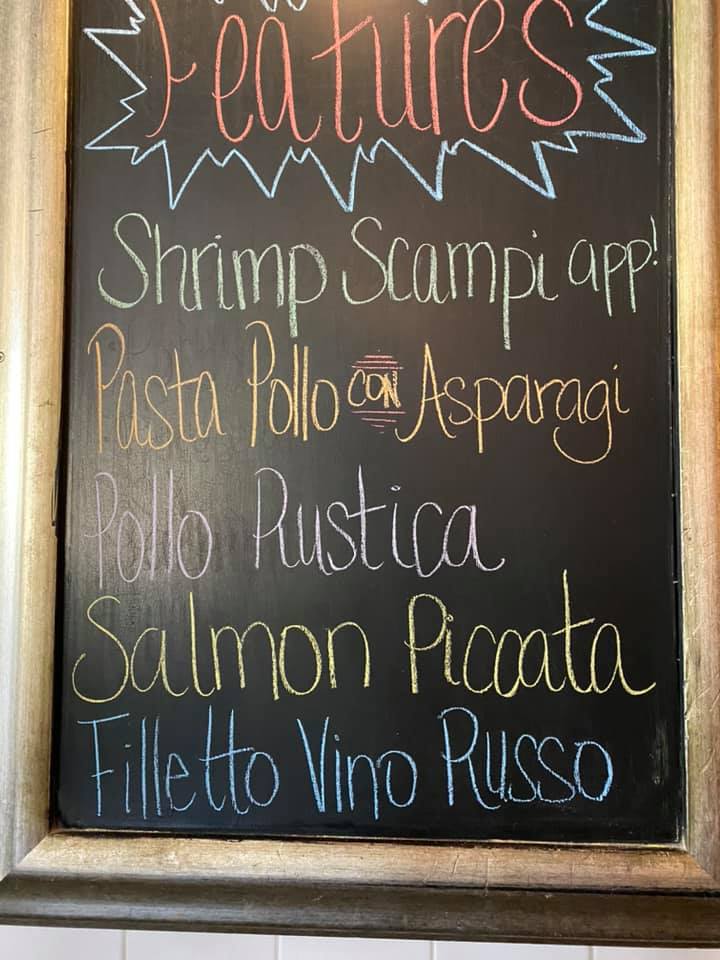 Features
Shrimp Scampi app!
Pasta Pollo CON Asparagi
Pollo Rustica
Salmon Piccata
Filletto Vino Russo